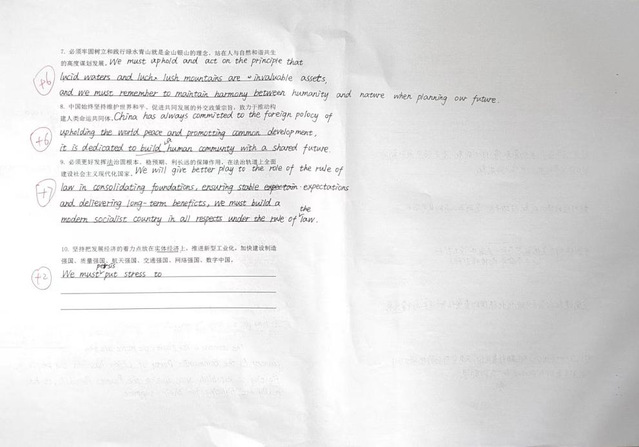 7. 必须牢固树立和践行绿水青山就是金山银山的理念，站在人与自然和谐共生
的高度谋划发展。We must uphold and act on the principle that
+6 lucid waters and lush mountains are invaluable assets,
and we must remember to maintain harmony between humanity and nature when planning our future.
8. 中国始终坚持维护世界和平、促进共同发展的外交政策宗旨，致力于推动构
建人类命运共同体。China has always committed to the foreign polocy of
+6 upholding the world peace and promotting common development,
it is dedicated to build a human communty with a shared future.
9. 必须更好发挥法治固根本、稳预期、利长远的保障作用，在法治轨道上全面
建设社会主义现代化国家。We will give better play to the role of the rule of
+7 law in consolidating foundations, ensuring stable expectations
and delievering long-term beneficts, we must build a
modern socialist country in all respects under the rule of the law.
10. 坚持把发展经济的着力点放在实体经济上，推进新型工业化，加快建设制造
强国、质量强国、航天强国、交通强国、网络强国、数字中国。
+2 We must put stress to